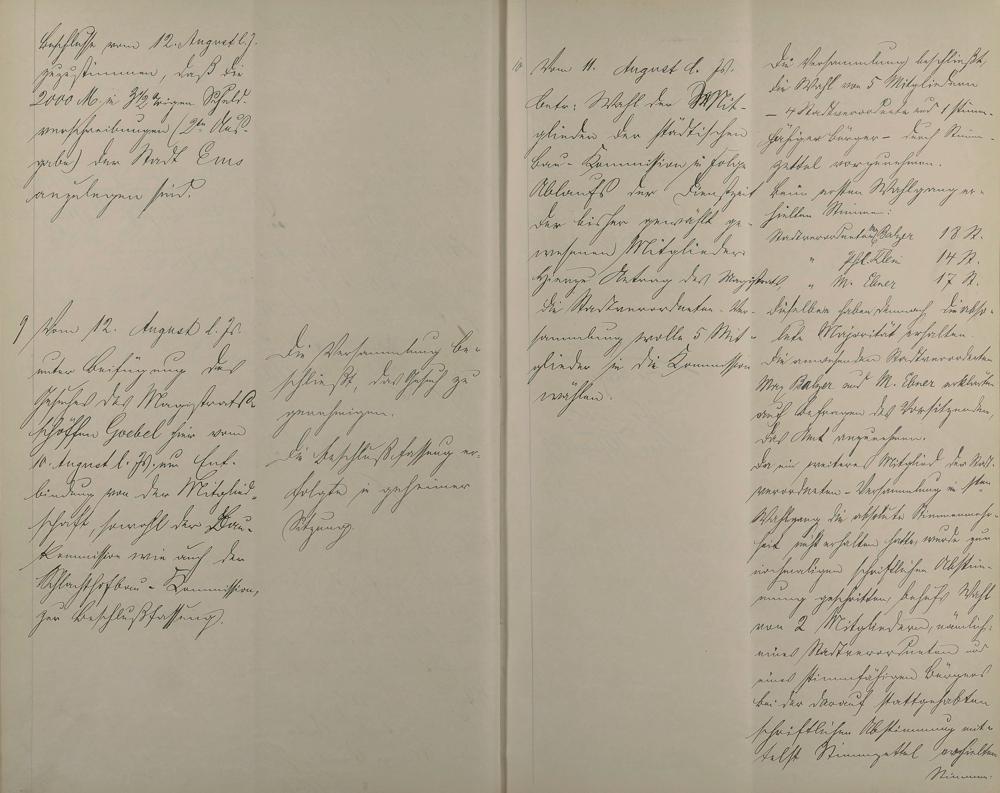 Beschlusse vom 12. August l. J.
zuzustimmen, daß die
2000 M. in 3 1/2 %igen Schuld-
verschreibungen (2te Aus-
gabe) der Stadt Ems
anzulegen sind.
9 Vom 12. August l. Js.
unter Beifügung des
Gesuches des Magistrats-
schöffen Goebel hier vom
10. August l. Js. um Ent-
bindung von der Mitglied-
schaft, sowohl der Bau-
Kommission wie auch der
Schlachthofbau-Commission,
zur Beschlußfassung.
Die Versammlung be-
schließt, das Gesuch zu
genehmigen.
Die Beschlußfassung er-
folgte in geheimer
Sitzung.
10 Vom 11. August l. Js.
betr: Wahl der Mit-
glieder der städtischen
Bau-Kommission in Folge
Ablaufs der Dienstzeit
der bisher gewählt ge-
wesenen Mitglieder.
Hierzu Antrag des Magistrats
die Stadtverordneten-Ver-
sammlung wolle 5 Mit-
glieder in die Commission
wählen.
Die Versammlung beschließt,
die Wahl von 5 Mitgliedern
– 4 Stadtverordnete und 1 stimm-
fähiger Bürger – durch Stimm-
zettel vorzunehmen.
Beim ersten Wahlgang er-
hielten Stimmen:
Stadtverordneter Max Balzer 18 St.
" Phl. Klein 14 St.
" M. Ebner 17 St.
dieselben haben demnach die abso-
lute Majorität erhalten.
Die anwesenden Stadtverordneten
Max Balzer und M. Ebner erklärten
auf Befragen des Vorsitzenden,
das Amt anzunehmen.
Da ein weiteres Mitglied der Stadt-
verordneten-Versammlung im ersten
Wahlgang die absolute Stimmenmehr-
heit nicht erhalten hatte, wurde zur
nochmaligen schriftlichen Abstim-
mung geschritten, behufs Wahl
von 2 Mitgliedern, nämlich:
eines Stadtverordneten und
eines stimmfähigen Bürgers
bei der darauf stattgehabten
schriftlichen Abstimmung mit-
telst Stimmzettel erhielten
Stimmen: